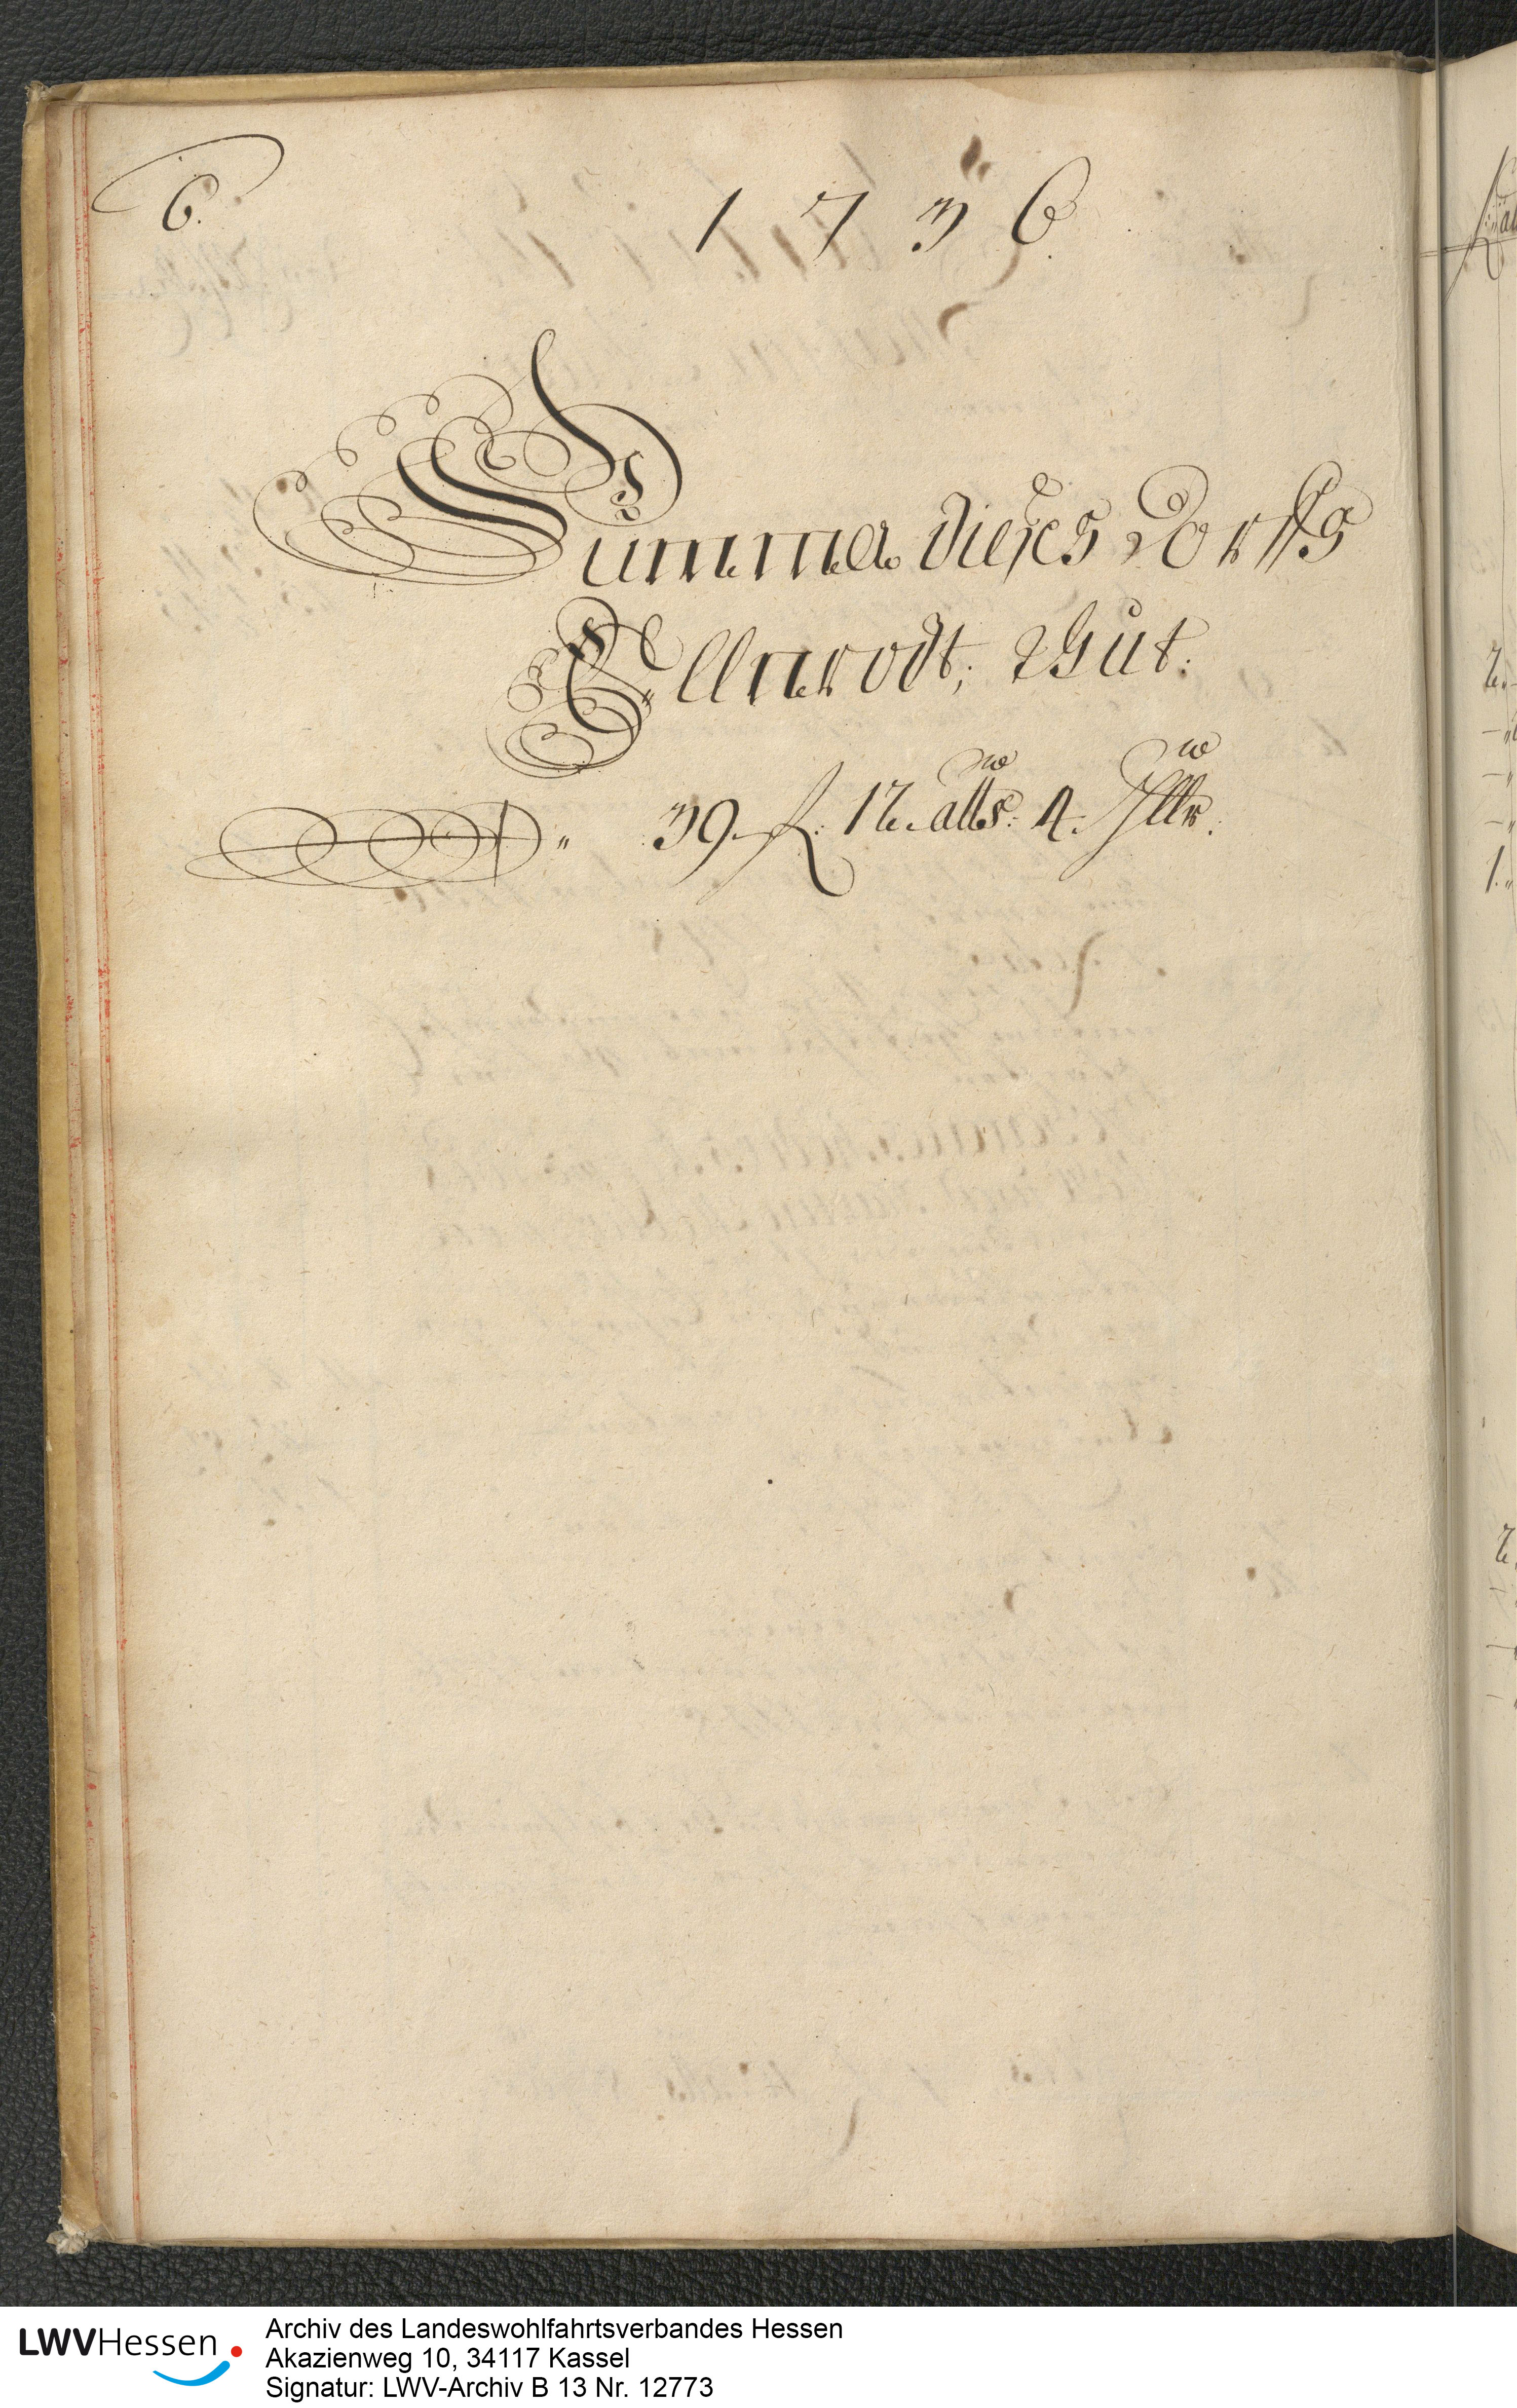 6.
1736.
Summa dieses Dorffs
Ellnrodt, thut.
39 fl: 12. albs: 4. hllr.
LWVHessen
Archiv des Landeswohlfahrtsverbandes Hessen
Akazienweg 10, 34117 Kassel
Signatur: LWV-Archiv B 13 Nr. 12773